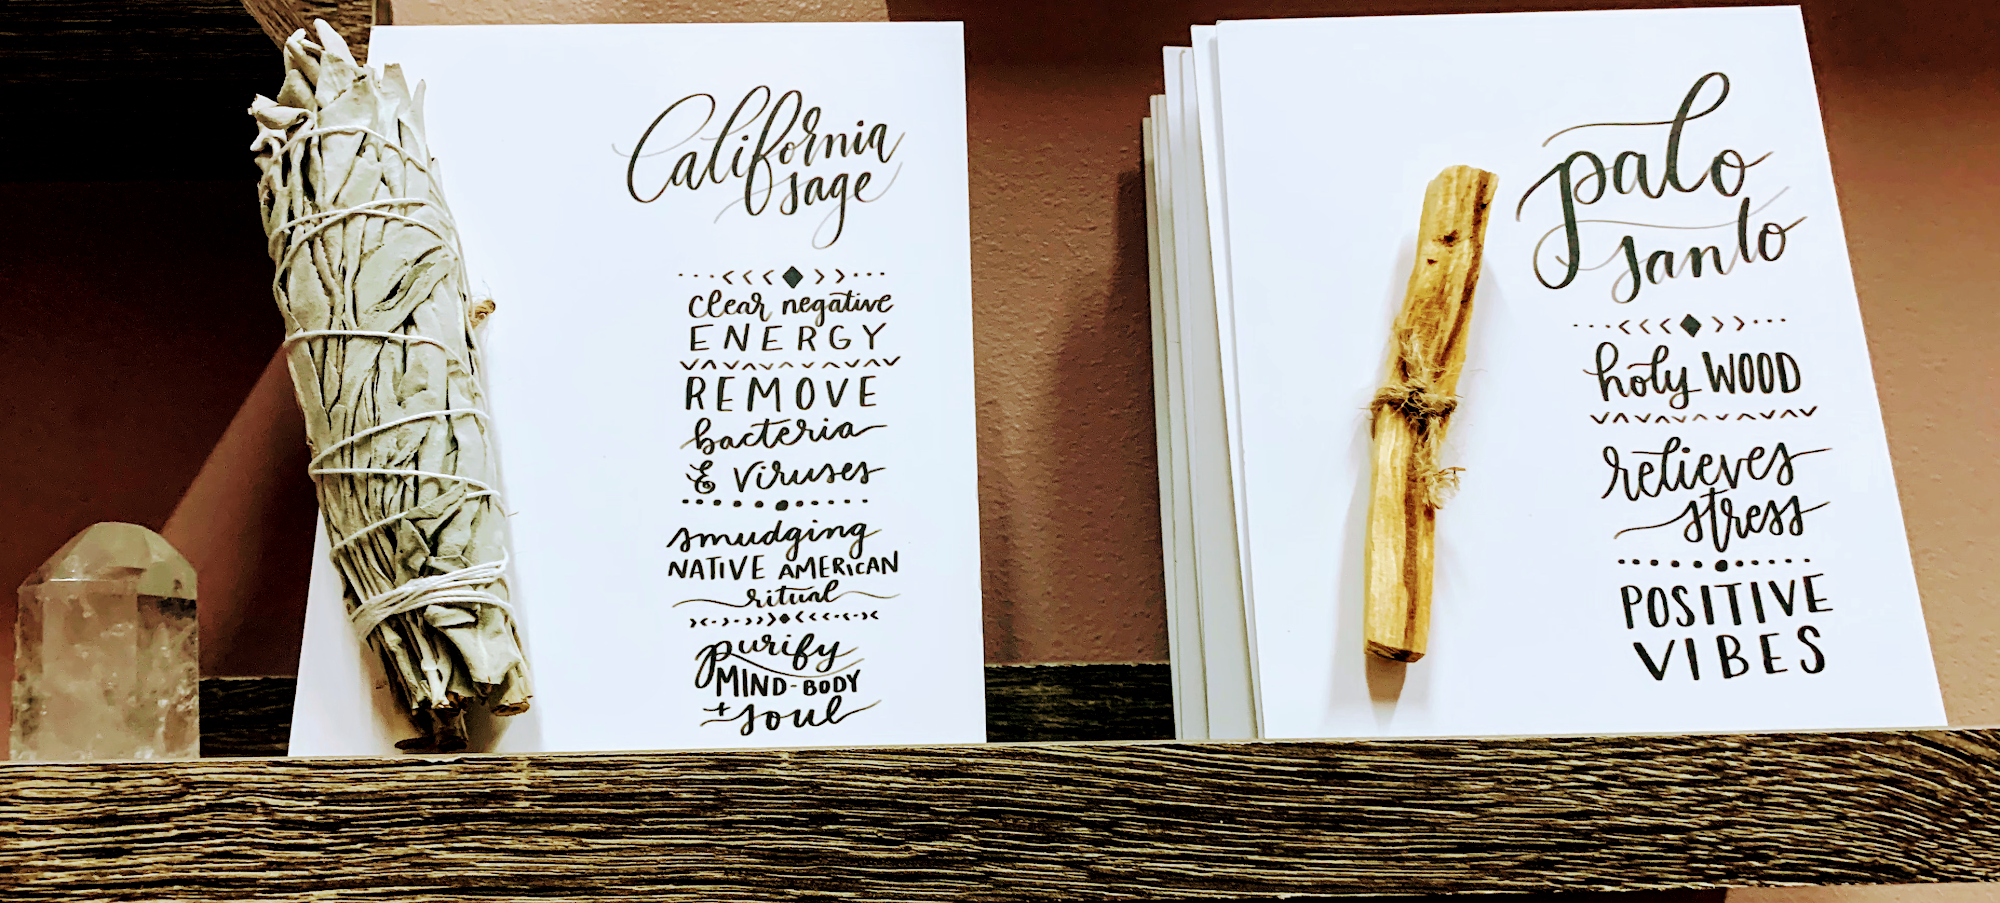 California
sage
clear negative
ENERGY
REMOVE
bacteria
& viruses
smudging
NATIVE AMERICAN
ritual
purify
MIND-BODY
+ soul
palo
santo
holy WOOD
relieves
stress
POSITIVE
VIBES